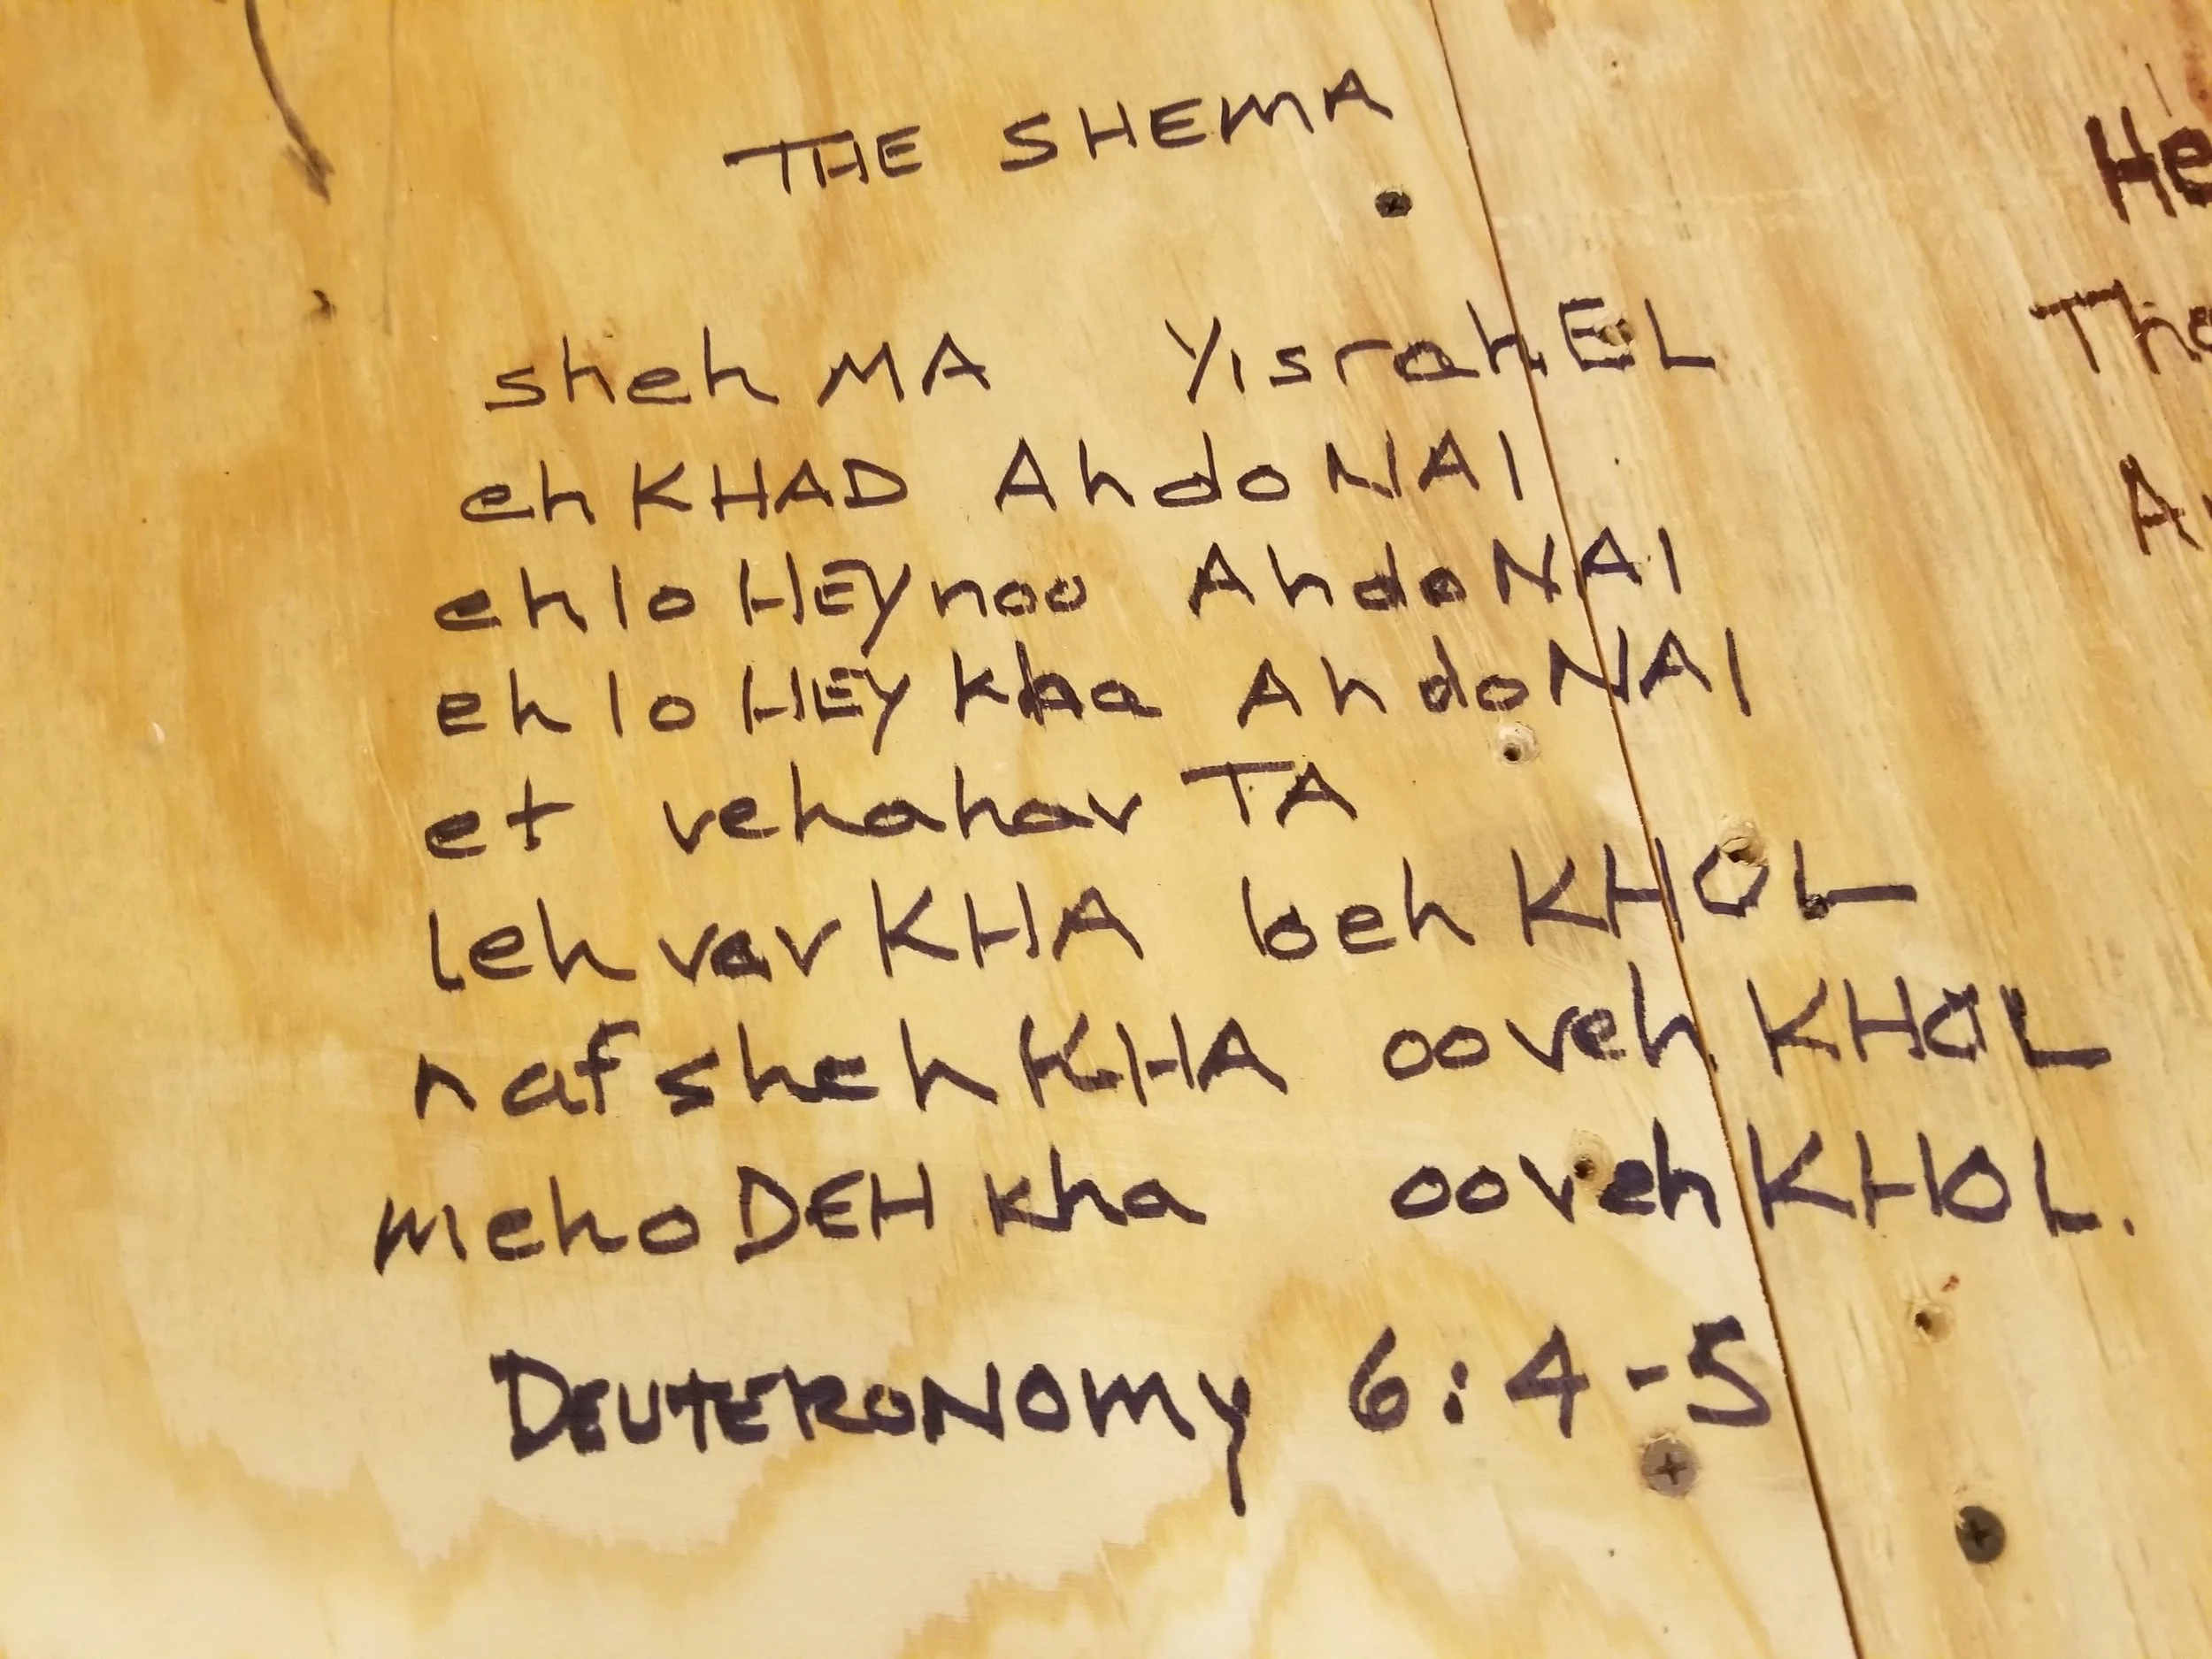 THE SHEMA
shehMA YisrahEL
ehKHAD AhdoNAI
ehloHEYnoo AhdoNAI
ehloHEYkha AhdoNAI
et vehahavTA
lehvavKHA behKHOL
nafshehKHA oovehKHOL
mehoDEHkha oovehKHOL.
DEUTERONOMY 6:4-5
He
The
A